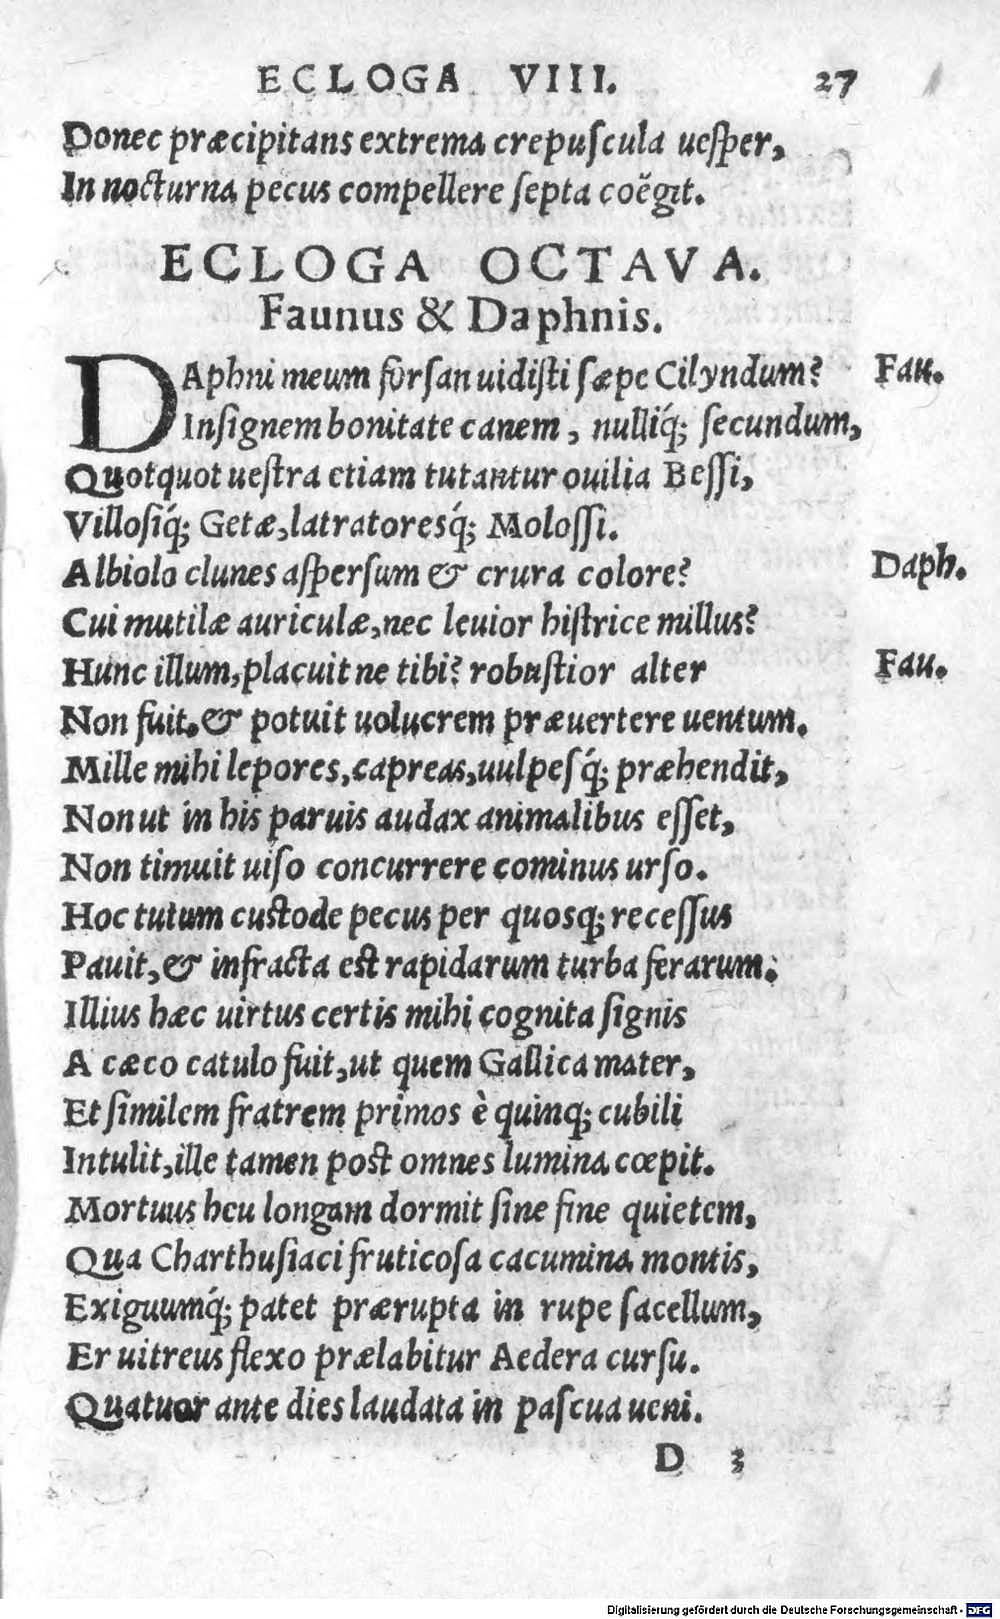 ECLOGA VIII. 27
Donec præcipitans extrema crepuſcula ueſper,
In nocturna pecus compellere ſepta coëgit.
ECLOGA OCTAVA.
Faunus & Daphnis.
DAphni meum forſan uidiſti ſæpe Cilyndum? Fau.
Inſignem bonitate canem, nulliq́; ſecundum,
Quotquot ueſtra etiam tutantur ouilia Beſſi,
Villoſiq́; Getæ, latratoresq́; Moloſſi.
Albiolo clunes aſperſum & crura colore? Daph.
Cui mutilæ auriculæ, nec leuior hiſtrice millus?
Hunc illum, placuit ne tibi? robuſtior alter Fau.
Non fuit. & potuit uolucrem præuertere uentum.
Mille mihi lepores, capreas, uulpeſq́; præhendit,
Non ut in his paruis audax animalibus eſſet,
Non timuit uiſo concurrere cominus urſo.
Hoc tutum custode pecus per quosq; receſſus
Pauit, & infracta est rapidarum turba ferarum.
Illius hæc uirtus certis mihi cognita ſignis
A cæco catulo fuit, ut quem Gallica mater,
Et ſimilem fratrem primos è quinq; cubili
Intulit, ille tamen post omnes lumina cœpit.
Mortuus heu longam dormit ſine fine quietem,
Qua Charthuſiaci fruticoſa cacumina montis,
Exiguumq́; patet prærupta in rupe ſacellum,
Er uitreus flexo prælabitur Aedera curſu.
Quatuor ante dies laudata in paſcua ueni.
D 3
Digitalisierung gefördert durch die Deutsche Forschungsgemeinschaft - DFG